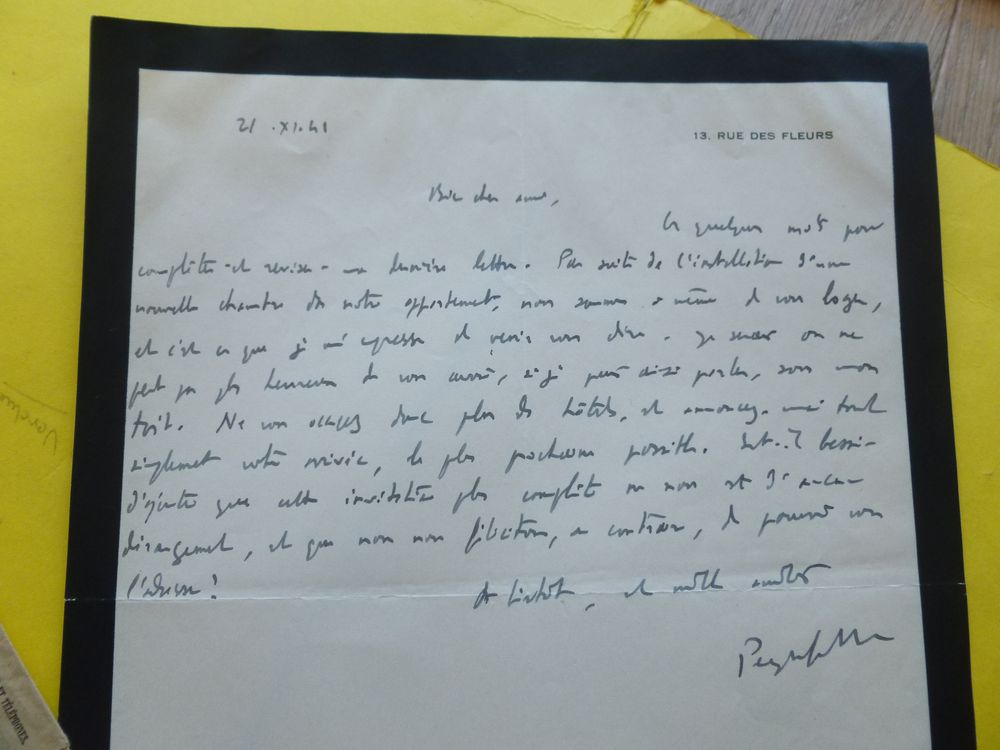 21.XI.41
13, RUE DES FLEURS
Bien cher ami,
Ces quelques mots pour
compléter et reviser ma dernière lettre. Par suite de l'installation d'une
nouvelle chambre ds notre appartement, nous sommes à même de vous loger,
et c'est ce que je m'empresse de venir vous dire. Je serais on ne
peut pas plus heureux de vous avoir, si je puis ainsi parler, sous mon
toit. Ne vous occupez donc plus des hôtels, et annoncez-moi tout
simplement votre arrivée, la plus prochaine possible. Est-il besoin
d'ajouter que cette invitation plus complète ne nous est d'aucun
dérangement, et que nous nous félicitons, au contraire, de pouvoir vous
l'adresser!
A bientôt, et mille amitiés
Peyrefitte
ET TÉLÉPHONES